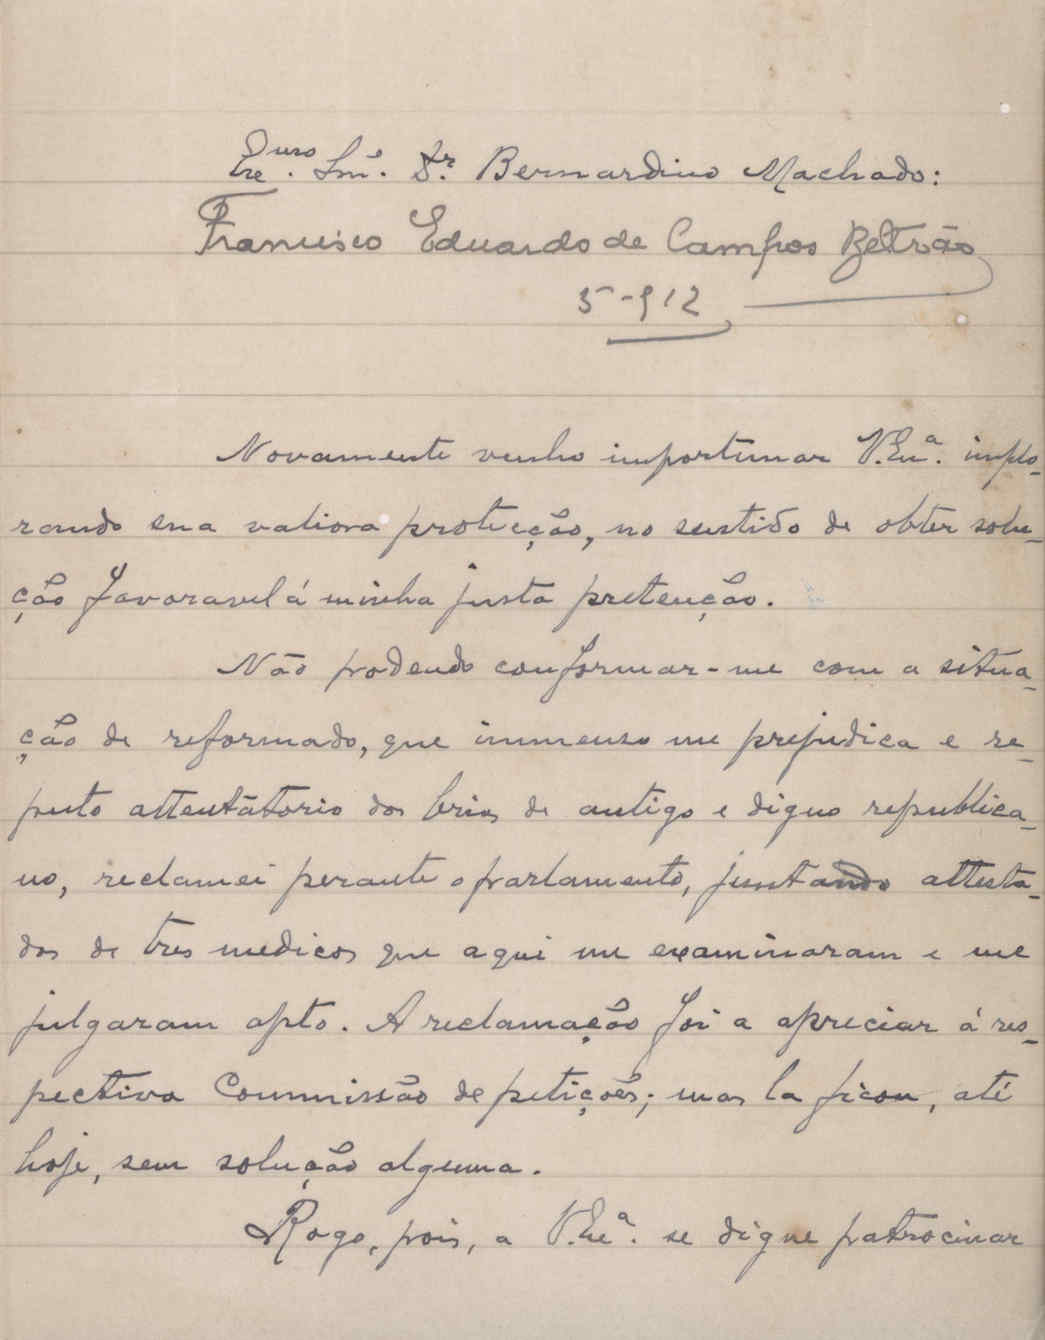 Exmo. Snr. Dr. Bernardino Machado:
Francisco Eduardo de Campos Beltrão
5-912
Novamente venho importunar V. Exª. implo-
rando sua valiosa protecção, no sentido de obter solu-
ção favoravel á minha justa pretenção.
Não podendo conformar-me com a situa-
ção de reformado, que immenso me prejudica e re-
puto attentatorio dos brios de antigo e digno republica-
no, reclamei perante o parlamento, juntando attesta-
dos de tres medicos que aqui me examinaram e me
julgaram apto. A reclamação foi a apreciar á res-
pectiva Commissão de petições; mas la ficou, até
hoje, sem solução alguma.
Rogo, pois, a V. Exª. se digne patrocinar